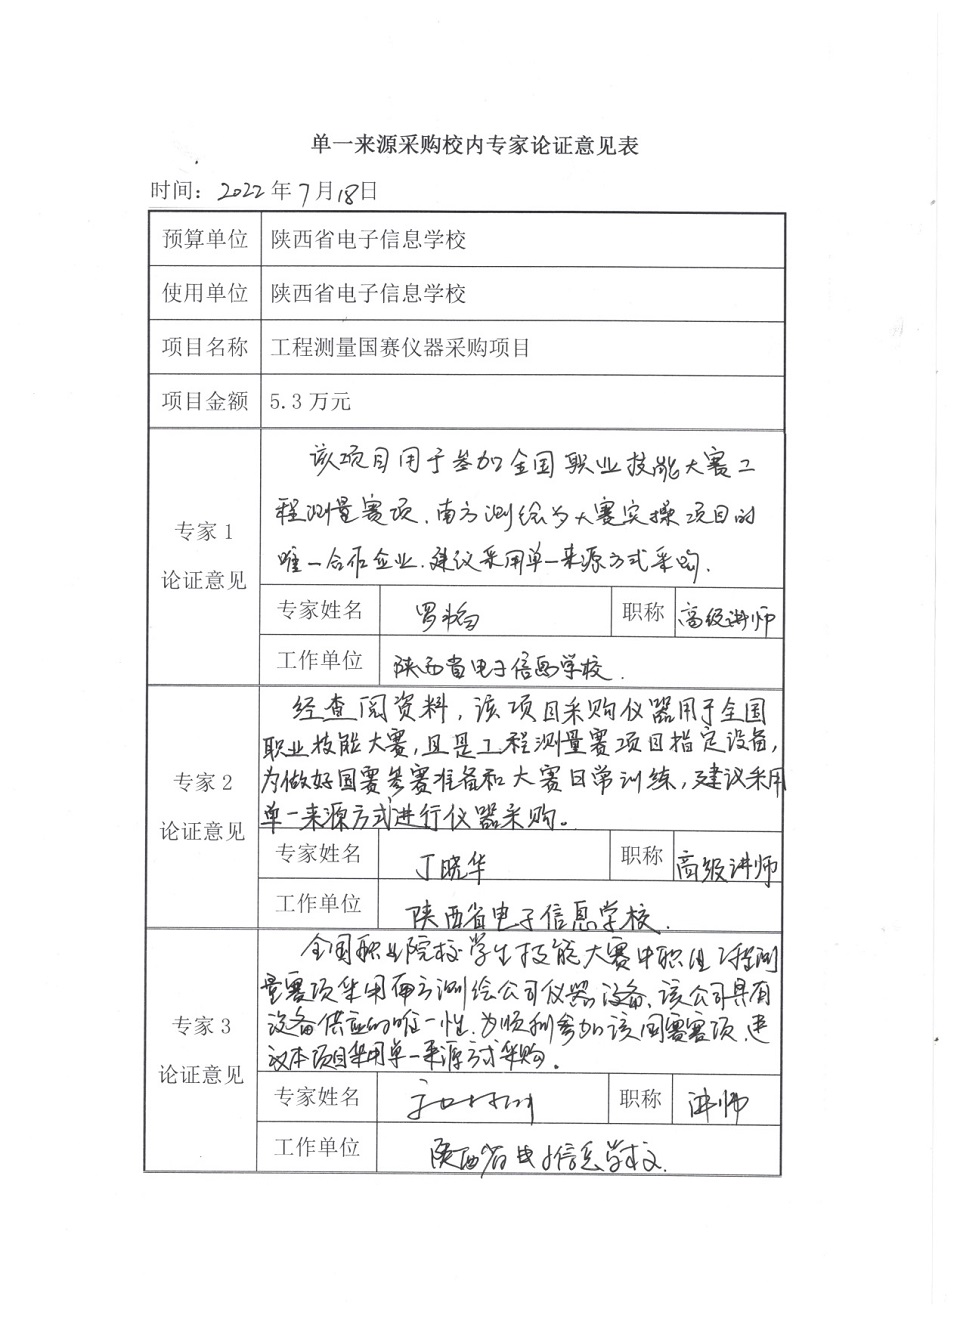 单一来源采购校内专家论证意见表
时间：2022年7月18日
预算单位 陕西省电子信息学校
使用单位 陕西省电子信息学校
项目名称 工程测量国赛仪器采购项目
项目金额 5.3万元
专家1
论证意见
该项目用于参加全国职业技能大赛工
程测量赛项，南方测绘为大赛实操项目的
唯一合作企业，建议采用单一来源方式采购.
专家姓名 罗韬 职称 高级讲师
工作单位 陕西省电子信息学校.
专家2
论证意见
经查阅资料，该项目采购仪器用于全国
职业技能大赛，且是工程测量赛项目指定设备，
为做好国赛参赛准备和大赛日常训练，建议采用
单一来源方式进行仪器采购。
专家姓名 丁晓华 职称 高级讲师
工作单位 陕西省电子信息学校.
专家3
论证意见
全国职业院校学生技能大赛中职组工程测
量赛项采用南方测绘公司仪器设备、该公司具有
设备供应的唯一性.为顺利参加该国赛赛项,建
议本项目采用单一来源方式采购。
专家姓名 职称 讲师
工作单位 陕西省电子信息学校.